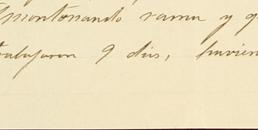 amontonando rama y q
trabajaron 9 dias, havien